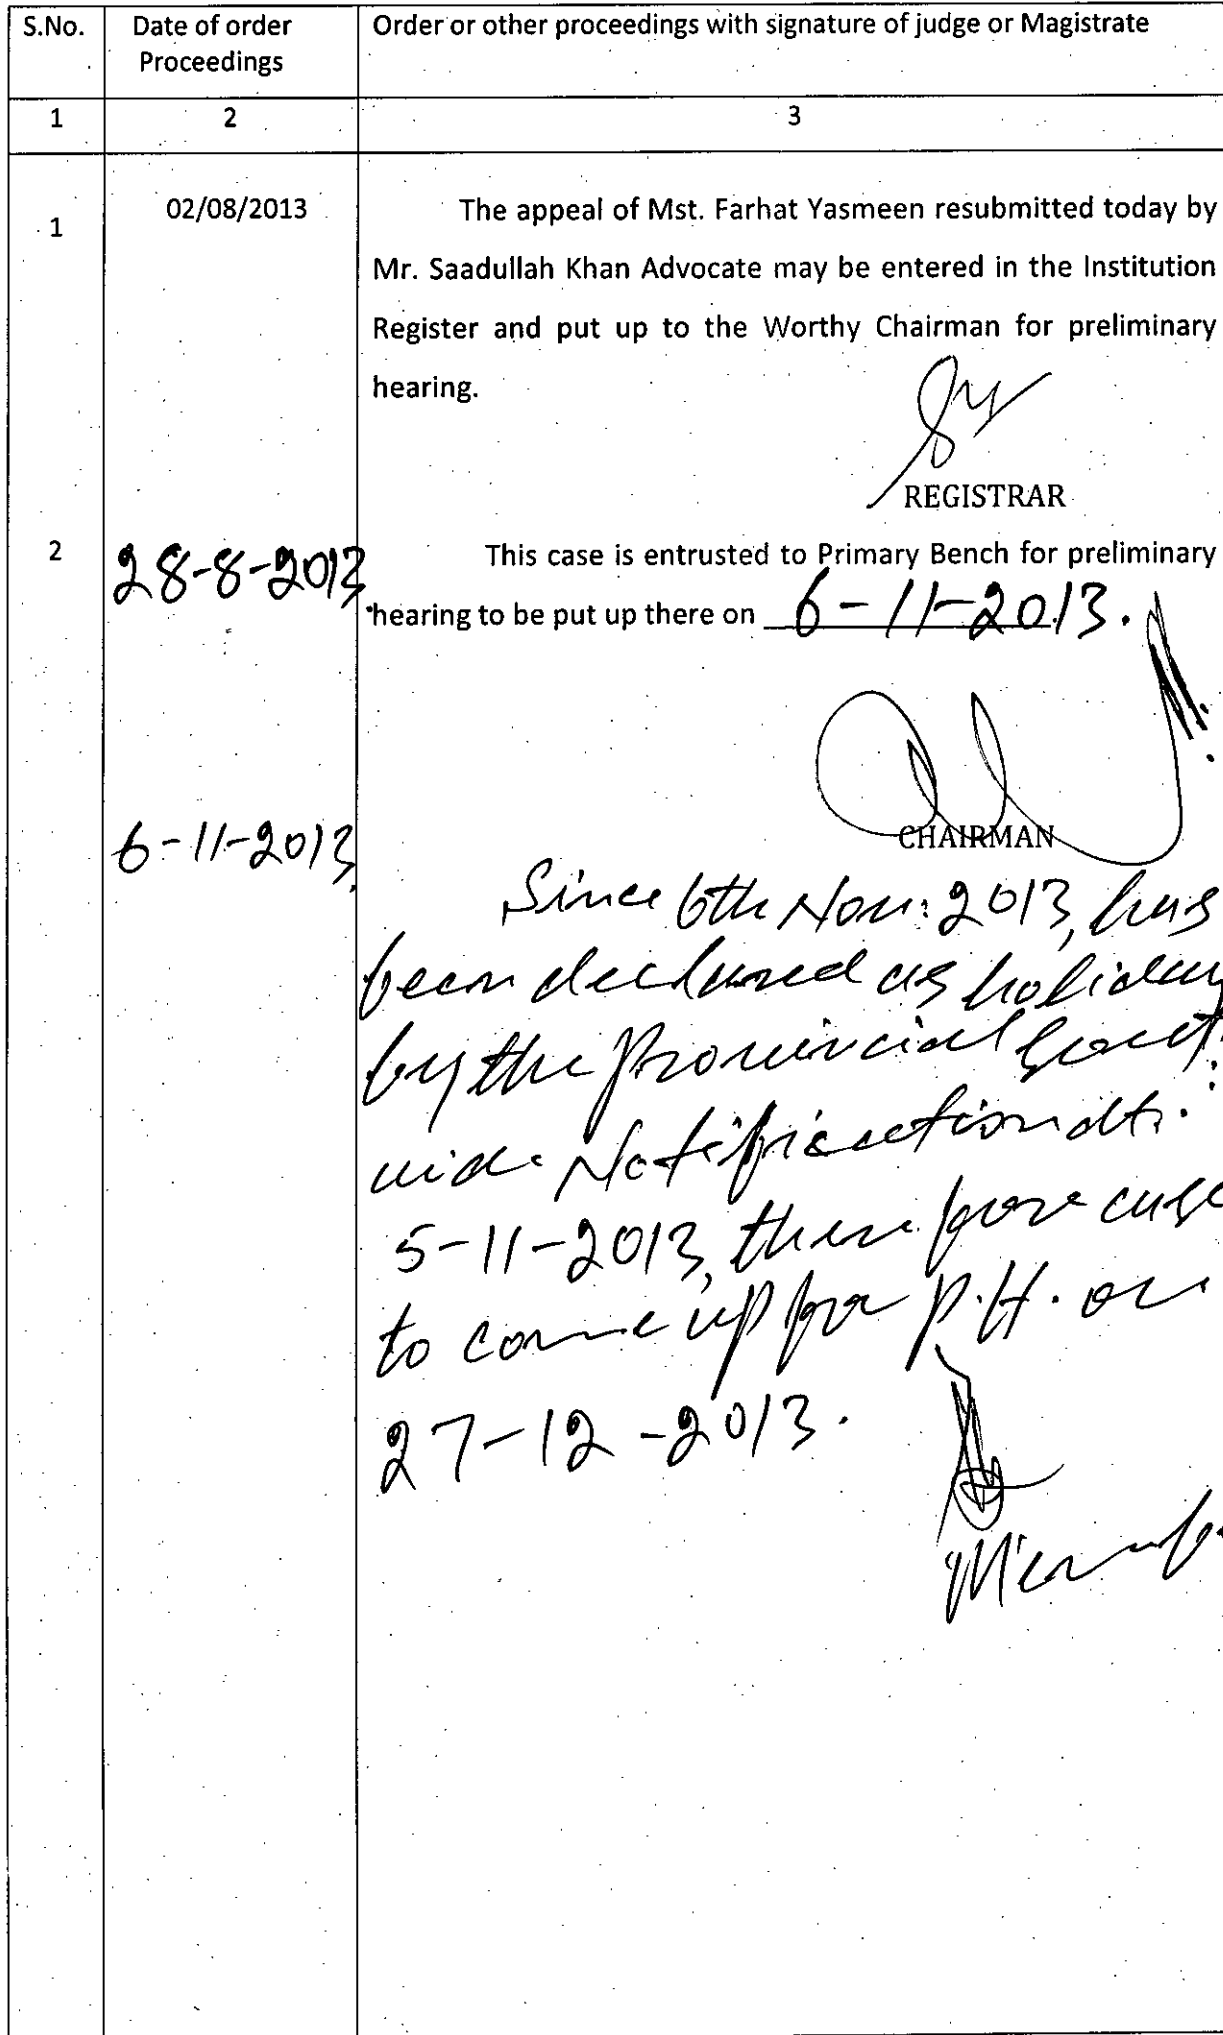 S.No.
Date of order
Proceedings
Order or other proceedings with signature of judge or Magistrate
1
2
3
1
02/08/2013
The appeal of Mst. Farhat Yasmeen resubmitted today by
Mr. Saadullah Khan Advocate may be entered in the Institution
Register and put up to the Worthy Chairman for preliminary
hearing.
REGISTRAR
2
28-8-2013
This case is entrusted to Primary Bench for preliminary
hearing to be put up there on 6-11-2013.
CHAIRMAN
6-11-2013
Since 6th Nov: 2013, has
been declared as holiday
by the Provincial Govt:
vide Notification dt:
5-11-2013, therefore case
to come up for P.H. on
27-12-2013.